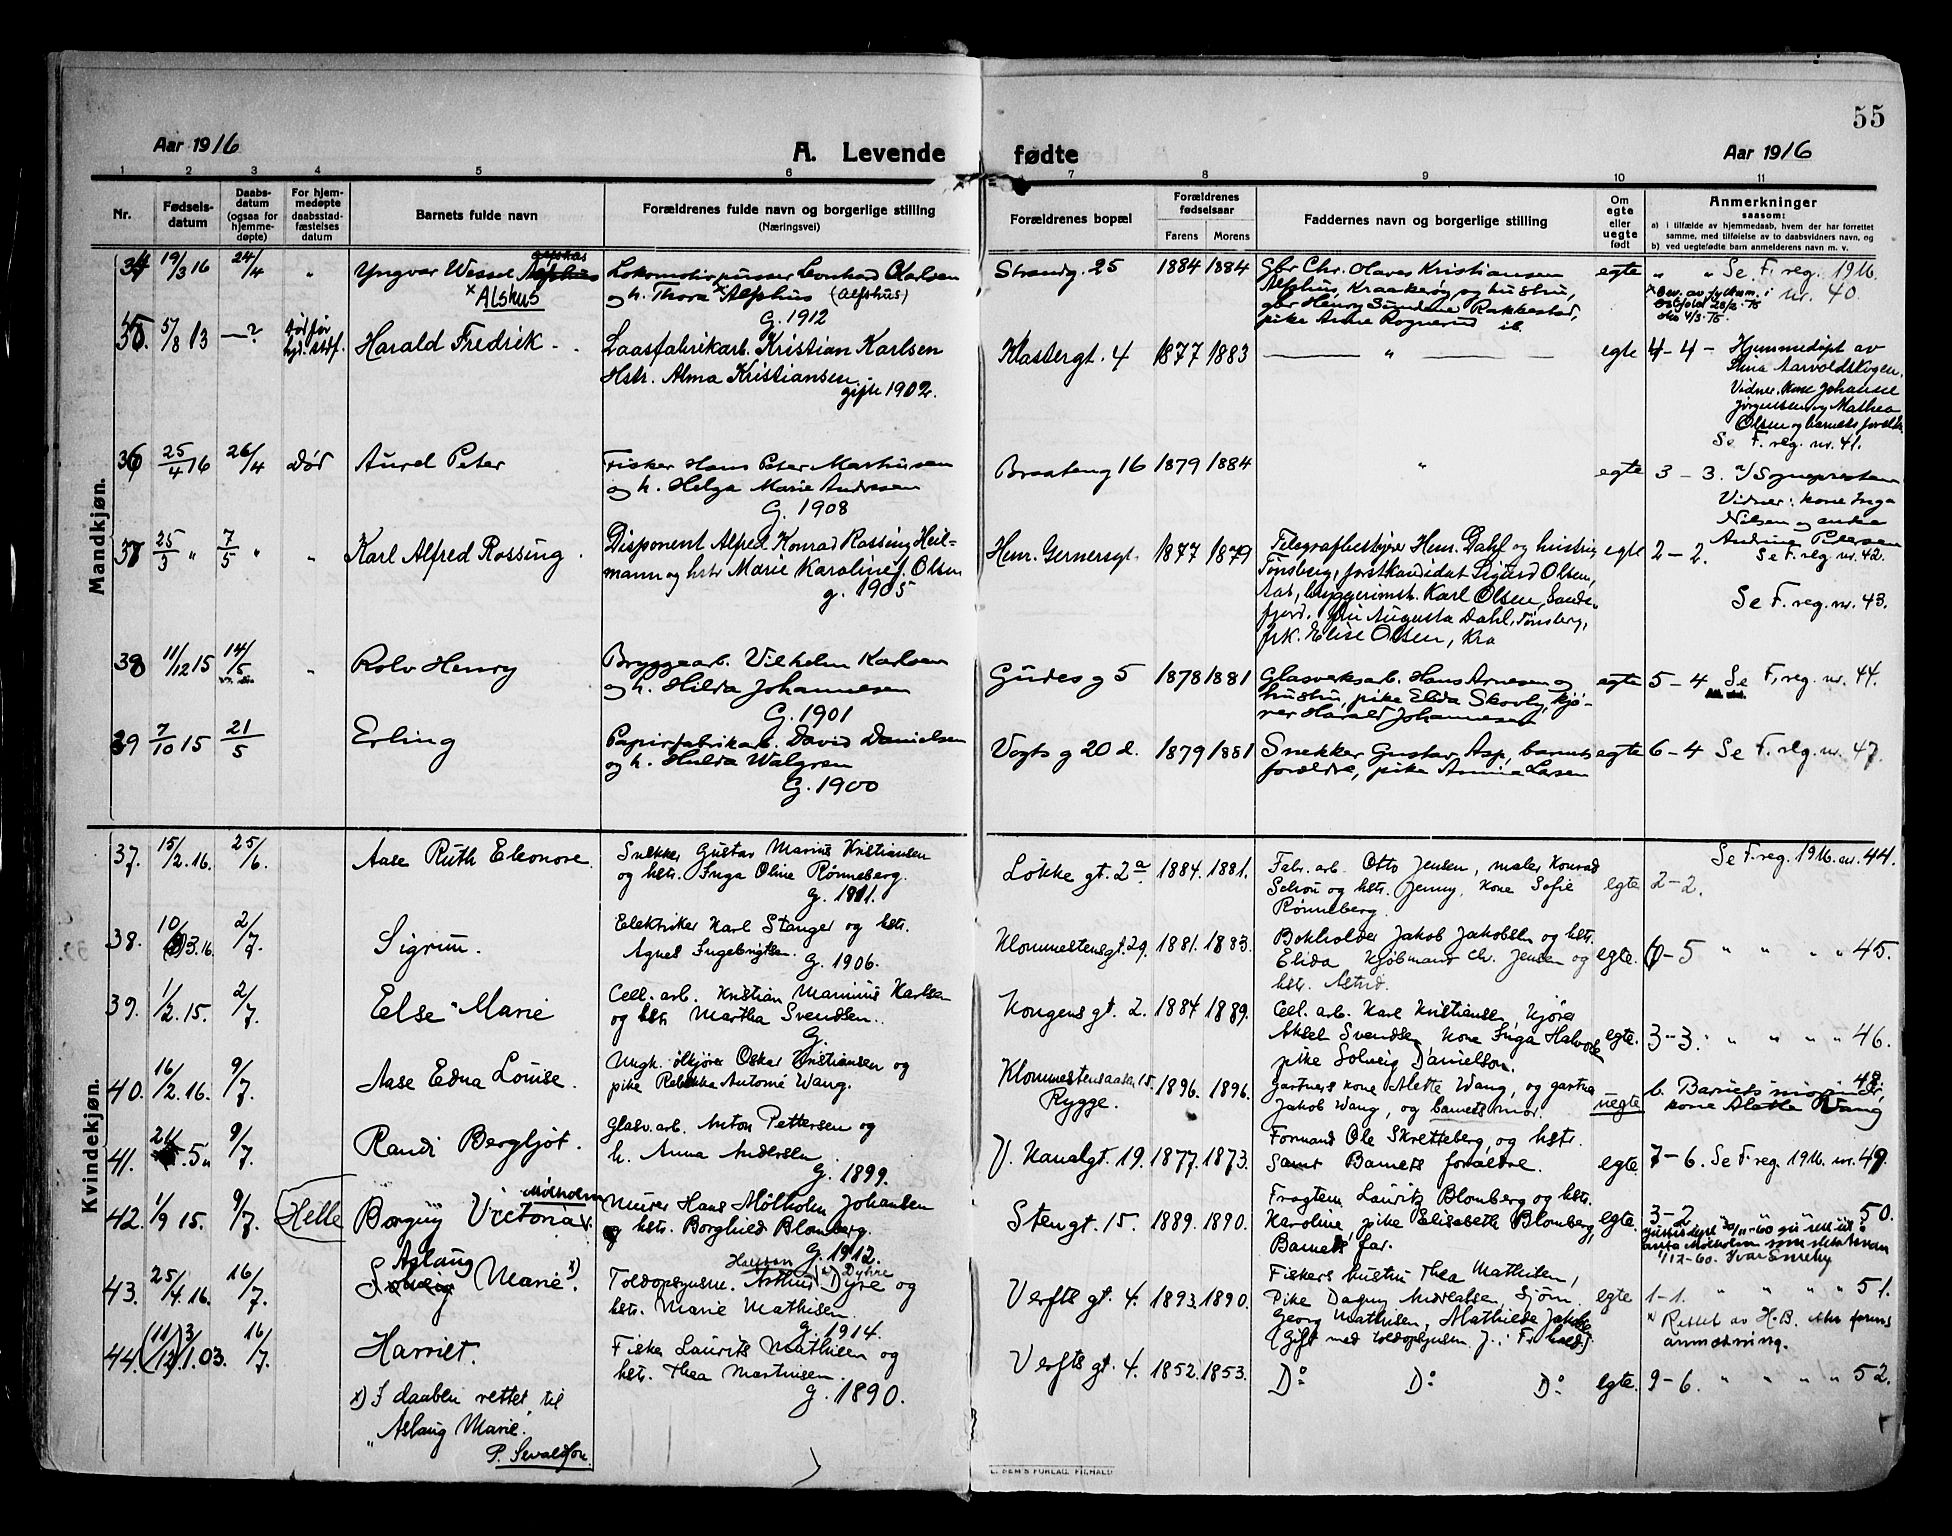 55
Aar 1916
A. Levende fødte
Aar 1916
1 2 3 4 5 6 7 8 9 10 11
Nr.
Fødsels-
datum
Daabs-
datum
(ogsaa for
hjemme-
døpte)
For hjem-
medøpte
daabsstad-
fæstelses
datum
Barnets fulde navn
Forældrenes fulde navn og borgerlige stilling
(Næringsvei)
Forældrenes bopæl
Forældrenes
fødselsaar
Farens Morens
Faddernes navn og borgerlige stilling
Om
egte
eller
uegte
født
Anmerkninger
saasom:
a) i tilfælde av hjemmedaab, hvem der har forrettet
samme, med tilføielse av to daabsvidners navn, og
b) ved uegtefødte barn anmelderens navn m. v.
Mandkjøn.
34 19/3 16 24/4 " Yngvar Wessel
x Alshus
Lokomotivpusser Leonhard Olavsen
og h. Thora x Alfshus (Alfshus)
G. 1912
Strandg. 25 1884 1884
Gbr Chr. Olaves Kristiansen
Alfshus, Kraakerøy og hustru,
gbr Henry Sundene Rakkestad,
pike Anne Rognerud ib.
egte " " Se F. reg. 1916.
nr. 40.
35. 5/8 13 —? Død før
Harald Fredrik
Laasfabrikarb. Kristian Karlsen
Hstr. Alma Kristiansen.
gift 1902.
Klostergt. 4 1877 1883 — " — egte 4-4-
Hjemmedøpt av
Stina Aarvoldskogen.
Vidner: Kone Johanne
Jørgensen og Mathea
Olsen og barnets forældre
Se F. reg. nr. 41.
36 25/4 16 26/4 død Aurel Peter
Fisker Hans Peter Marthinsen
og h. Helga Marie Andresen
G. 1908
Braateng 16 1879 1884 " egte 3-3. a/ Sognepresten
Vidner: kone Inga
Nilsen og enke
Andrine Petersen
Se F. reg. nr. 42.
37 25/3 " 7/5 " " Karl Alfred Rossing.
Disponent Alfred Konrad Rossing Heil-
mann og hstr Marie Karoline f. Olsen
g. 1905
Henr. Gernersgt. 1877 1879
Telegrafbestyrer Henr. Dahl og hustru
Tønsberg, forstkandidat Sigurd Olsen,
Aas, byggerimstr. Karl Olsen, Sande-
fjord. fru Augusta Dahl, Tønsberg,
frk. Elise Olsen, Kra
egte 2-2.
Se F. reg. nr. 43.
38 11/12 15 14/5 " Rolv Henry
Bryggearb. Vilhelm Karlsen
og h. Hilda Johannesen
G. 1901
Gudes g 5 1878 1881
Glasverksarb. Hans Arnesen og
hustru, pike Elida Skovly, kjø-
rer Harald Johannesen
egte 5-4 Se F. reg. nr. 44.
39 7/10 15 21/5 Erling
Papirfabrikarb. David Danielsen
og h. Hulda Walgren
G. 1900
Vogts g 20 d. 1879 1881
Snekker Gustav Asp, barnets
forældre, pike Annie Larsen
egte 6-4 Se F. reg. nr. 47.
Kvindekjøn.
37. 15/2. 16. 25/6. Aase Ruth Eleonore.
Snekker Gustav Marius Kristiansen
og hstr. Inga Oline Rønneberg.
G. 1911.
Løkke gt. 2a. 1884. 1881.
Fabr. arb. Otto Jensen, maler Konrad
Schou og hstr. Jenny, Kone Sofie
Rønneberg.
egte 2-2.
Se F. reg. 1916. nr. 44.
38. 10/3. 16. 2/7. Sigrun.
Elektriker Karl Stanger og hstr.
Agnes Ingebrigtsen.
G. 1906.
Klommestensgt. 29. 1881. 1883.
Bokholder Jakob Jakobsen og hstr.
Elida Kjøbmand Chr. Jensen og
hstr. Astrid.
egte. 6-5 " " " " 45.
39. 1/2. 15. 2/7. Else-Marie
Cell. arb. Kristian Marinius Karlsen
og hstr Martha Svendsen.
G.
Kongens gt. 2. 1884 1889.
Cell. arb. Karl Kristiansen, Kjører
Aksel Svendsen Kone Inga Halvorsen
pike Solveig Danielson.
egte. 3-3. " " " " 46.
40. 16/2. 16. 9/7. Aase Edna Louise.
Ungk. ølkjører Oskar Kristiansen og
pike Rebekka Antonie Wang.
Klommestensaasen 15.
Rygge. 1896. 1896.
Gartners kone Alette Wang, og gartner
Jakob Wang, og barnets mor.
uegte b. Barnets mormoder, 48.
kone Alette Wang
41. 9/7. Randi Bergljot.
Glasv. arb. Anton Pettersen og
h. Anna Andersen
G. 1899.
V. Kanalgt. 19. 1877. 1873.
Formand Ole Skretteberg, og hstr.
Samt Barnets forældre.
egte 7-6. Se F. reg 1916. nr. 49.
42. 1/9 15. 9/7. Helle Borguy Victoria Mølholm
Murer Hans Mølholm Johansen
og hstr. Borghild Blomberg.
G. 1912.
Stengt. 15. 1889. 1890.
Fragtem. Lauritz Blomberg og hstr.
Karoline, pike Elisabeth Blomberg,
Barnets far.
egte. 3-2 50.
1/12-60. Ivar Enreby
43. 25/4. 16. 16/7. Aslaug
Solveig Marie x).
Toldopsynsm. Arthur Dyre og
hstr. Marie Mathisen.
G. 1914.
Verfts gt. 4. 1893. 1890.
Fiskers hustru Thea Mathisen,
Pike Dagny Andreassen, Sjøm.
Georg Mathisen, Mathilde Jakobsen
(gift med toldopsynsm J. i Fr.hald).
egte 1-1. " " " " 51.
x Rettet av H.B. efter farens
anmodning.
44. (11/12) 3/1. 03. 16/7. Harriet.
Fisker Laurits Mathisen og
hstr. Thea Martinsen.
G. 1890.
Verfts gt. 4. 1852. 1853.
Do Do Do egte. 9-6. " " " " 52.
x) I daabln rettet til
"Aslaug Marie".
P. Sevaldson
E. SEM'S FORLAG, FR.HALD